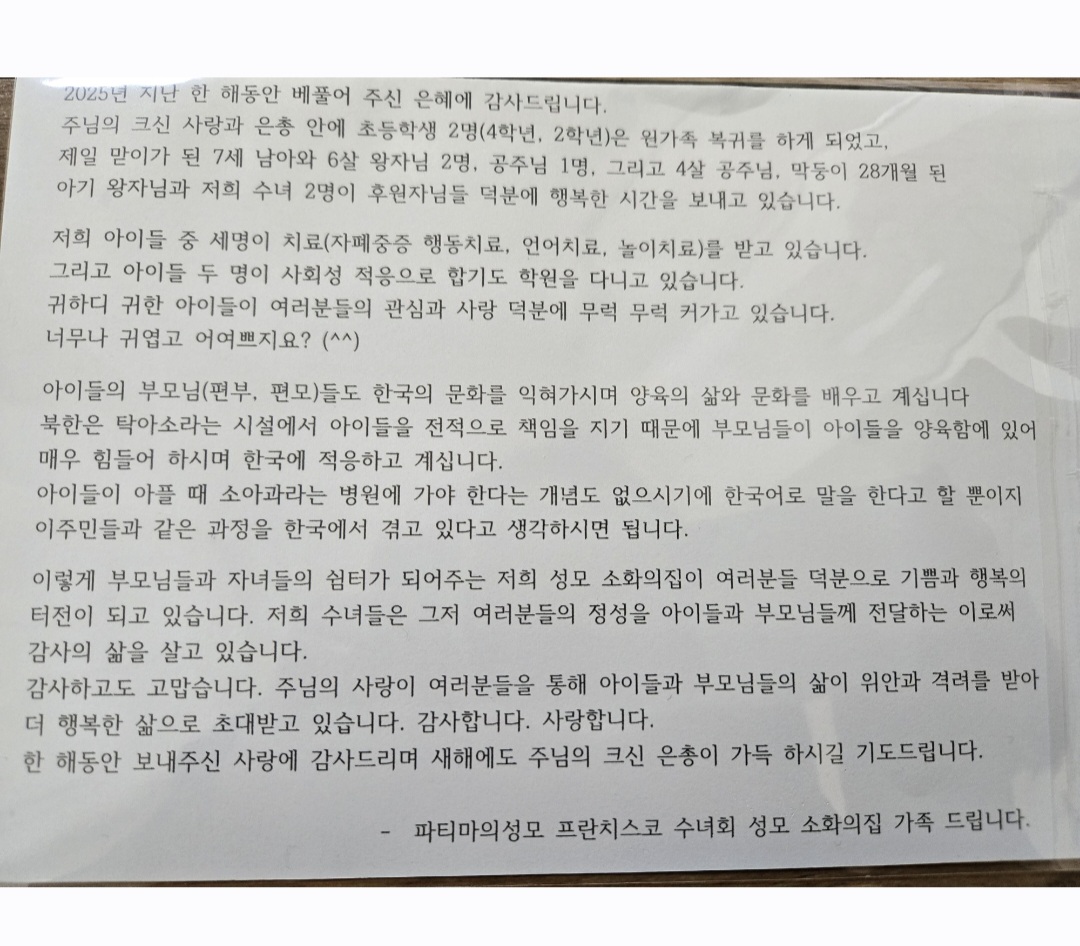 2025년 지난 한 해동안 베풀어 주신 은혜에 감사드립니다.
주님의 크신 사랑과 은총 안에 초등학생 2명(4학년, 2학년)은 원가족 복귀를 하게 되었고,
제일 맏이가 된 7세 남아와 6살 왕자님 2명, 공주님 1명, 그리고 4살 공주님, 막둥이 28개월 된
아기 왕자님과 저희 수녀 2명이 후원자님들 덕분에 행복한 시간을 보내고 있습니다.
저희 아이들 중 세명이 치료(자폐중증 행동치료, 언어치료, 놀이치료)를 받고 있습니다.
그리고 아이들 두 명이 사회성 적응으로 합기도 학원을 다니고 있습니다.
귀하디 귀한 아이들이 여러분들의 관심과 사랑 덕분에 무럭 무럭 커가고 있습니다.
너무나 귀엽고 어여쁘지요? (^^)
아이들의 부모님(편부, 편모)들도 한국의 문화를 익혀가시며 양육의 삶와 문화를 배우고 계십니다
북한은 탁아소라는 시설에서 아이들을 전적으로 책임을 지기 때문에 부모님들이 아이들을 양육함에 있어
매우 힘들어 하시며 한국에 적응하고 계십니다.
아이들이 아플 때 소아과라는 병원에 가야 한다는 개념도 없으시기에 한국어로 말을 한다고 할 뿐이지
이주민들과 같은 과정을 한국에서 겪고 있다고 생각하시면 됩니다.
이렇게 부모님들과 자녀들의 쉼터가 되어주는 저희 성모 소화의집이 여러분들 덕분으로 기쁨과 행복의
터전이 되고 있습니다. 저희 수녀들은 그저 여러분들의 정성을 아이들과 부모님들께 전달하는 이로써
감사의 삶을 살고 있습니다.
감사하고도 고맙습니다. 주님의 사랑이 여러분들을 통해 아이들과 부모님들의 삶이 위안과 격려를 받아
더 행복한 삶으로 초대받고 있습니다. 감사합니다. 사랑합니다.
한 해동안 보내주신 사랑에 감사드리며 새해에도 주님의 크신 은총이 가득 하시길 기도드립니다.
- 파티마의성모 프란치스코 수녀회 성모 소화의집 가족 드립니다.